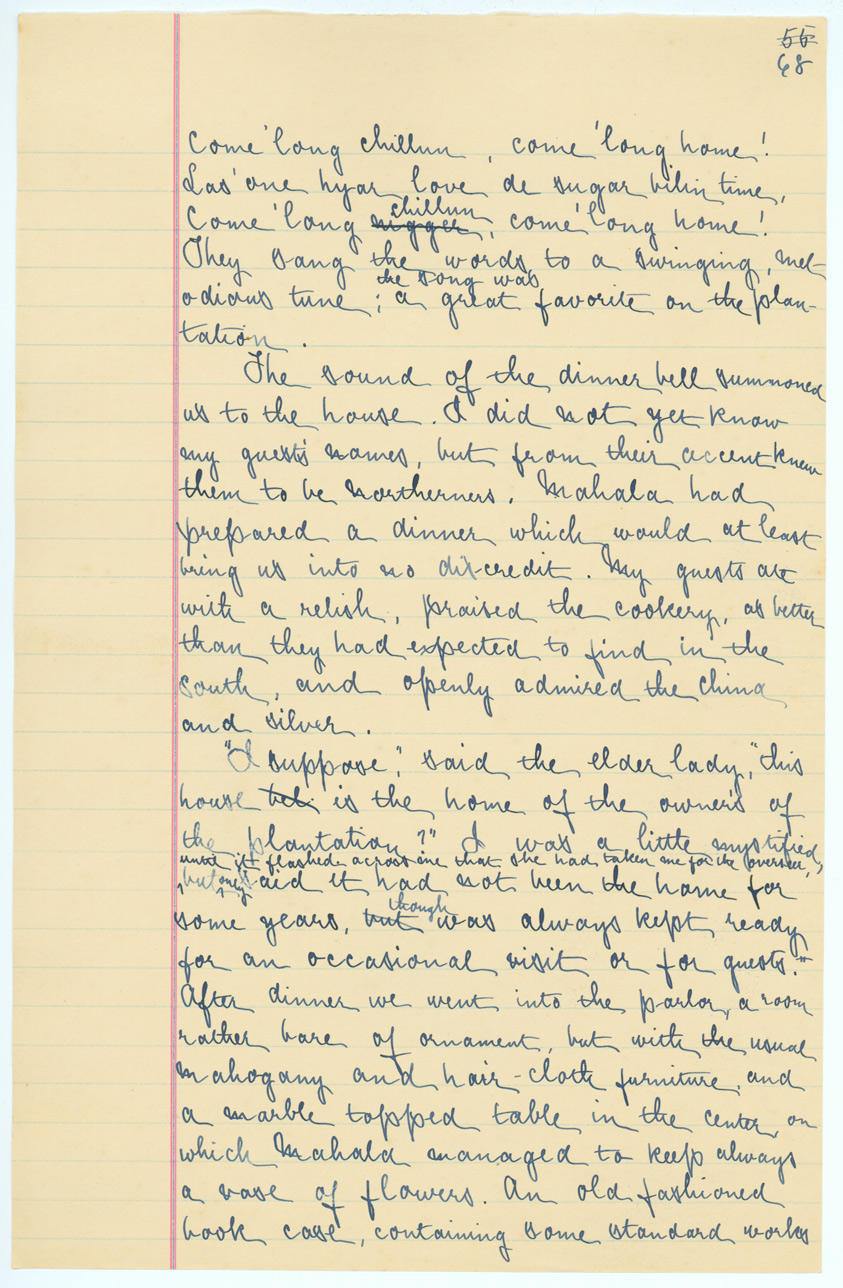 55
68
Come 'long chillun, come 'long home!
Las' one hyar love de sugar bilin time,
chillun
Come 'long nigger, come 'long home!
They sang the words to a swinging, mel-
the song was
odious tune; a great favorite on the plan-
tation.
The sound of the dinner bell summoned
us to the house. I did not yet know
my guests' names, but from their accent knew
them to be northerners. Mahala had
prepared a dinner which would at least
bring us into no dis-credit. My guests ate
with a relish, praised the cookery, as better
than they had expected to find in the
south, and openly admired the china
and silver.
"I suppose", said the elder lady, "this
house bel. is the home of the owners of
the plantation?" I was a little mystified,
until it flashed across me that she had taken me for the overseer,
but only said it had not been the home for
though
some years, but was always kept ready
for an occasional visit or for guests."
After dinner we went into the parlor, a room
rather bare of ornament, but with the usual
mahogany and hair-cloth furniture, and
a marble topped table in the center, on
which Mahala managed to keep always
a vase of flowers. An old fashioned
book case, containing some standard works